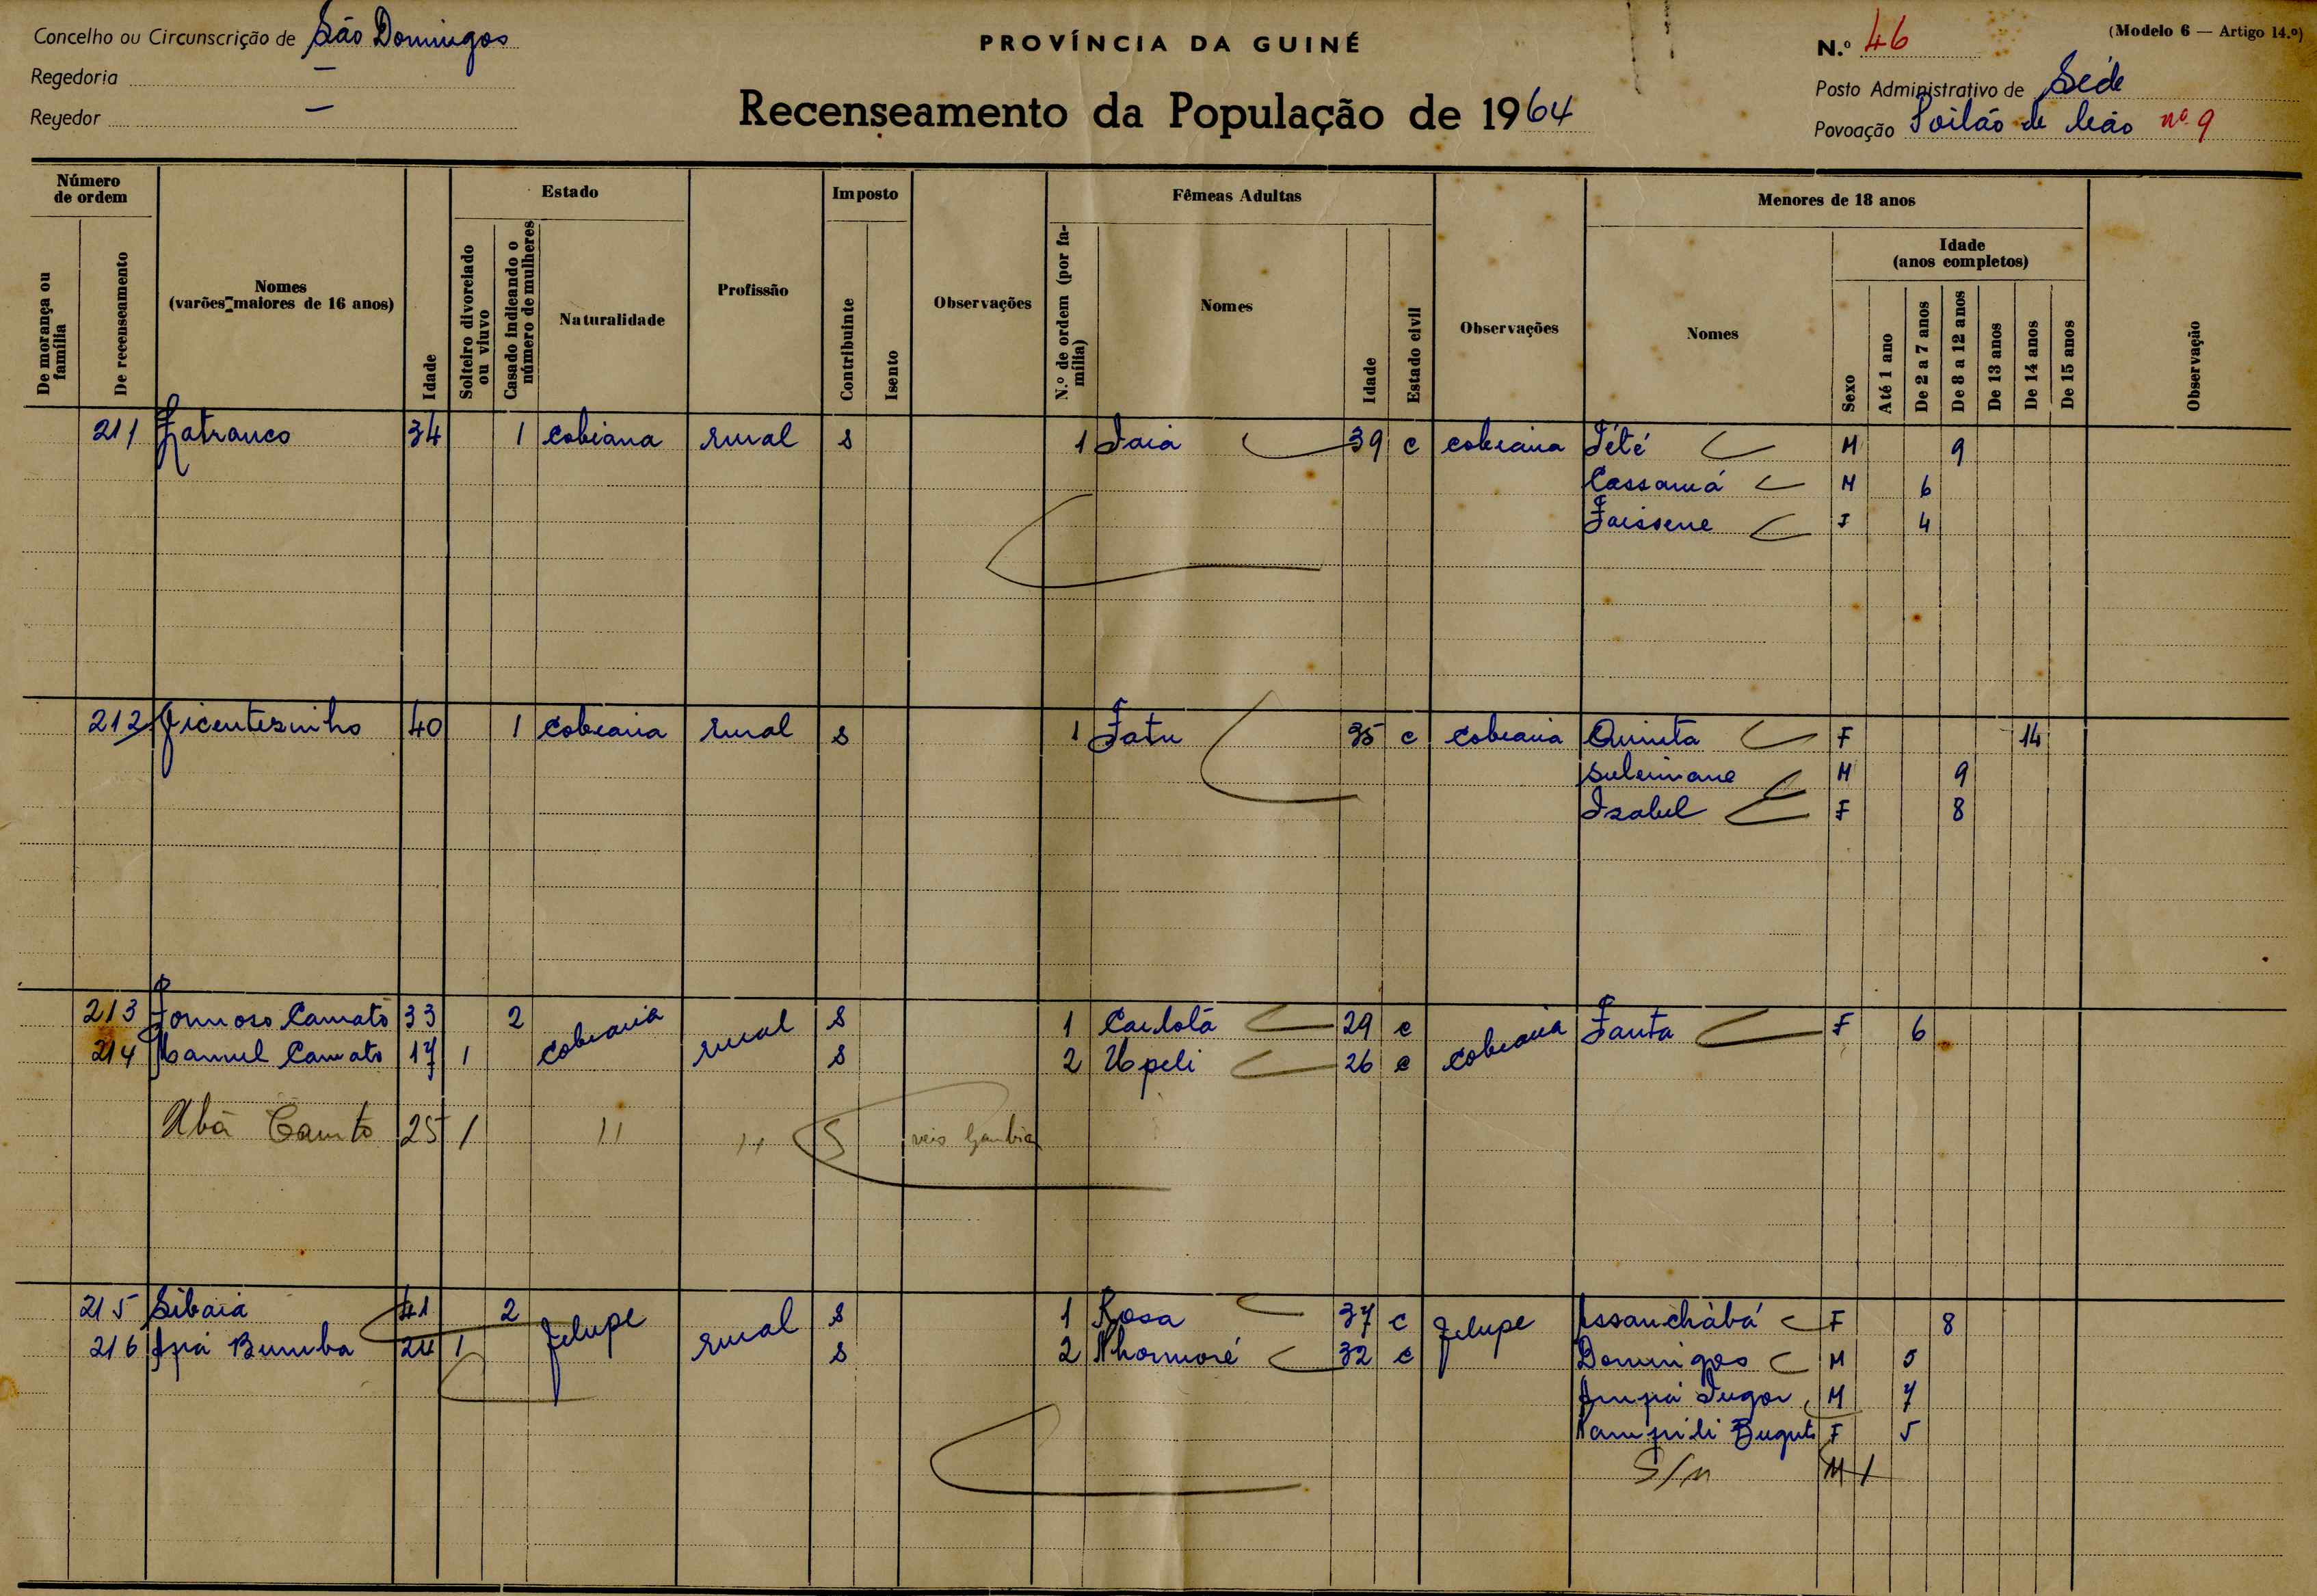 Concelho ou Circunscrição de São Domingos
Regedoria —
Regedor —
PROVÍNCIA DA GUINÉ
Recenseamento da População de 1964
N.º 46
(Modelo 6 — Artigo 14.º)
Posto Administrativo de Séde
Povoação Poilão de Leão nº 9
Número de ordem
De morança ou família
De recenseamento
Nomes (varões maiores de 16 anos)
Idade
Estado
Solteiro divorciado ou viuvo
Casado indicando o número de mulheres
Naturalidade
Profissão
Imposto
Contribuinte
Isento
Observações
Fêmeas Adultas
N.º de ordem (por família)
Nomes
Idade
Estado civil
Observações
Menores de 18 anos
Nomes
Sexo
Idade (anos completos)
Até 1 ano
De 2 a 7 anos
De 8 a 12 anos
De 13 anos
De 14 anos
De 15 anos
Observação
211 Fatranco 34 1 cobiana rural s 1 Iaia 39 c cobiana Tété M 9
Cassamá M 6
Faissene F 4
212 Vicentesinho 40 1 cobiana rural s 1 Fatu 35 c cobiana Quinta F 14
Suleimane M 9
Izabel F 8
213 Formoso Camató 33 2 cobiana rural s 1 Carlota 29 c cobiana Fanta F 6
214 Manuel Camató 17 1 s 2 Upeli 26 c
Ubá 25 1 11 11 S veio Gambia
215 Sibaia 41 2 felupe rural s 1 Rosa 37 c felupe Assanchábá F 8
216 Apá Bumba 24 1 s 2 Nhormoré 32 c Domingos M 5
Ampá M 7
Nampili F 5
S/n M 1